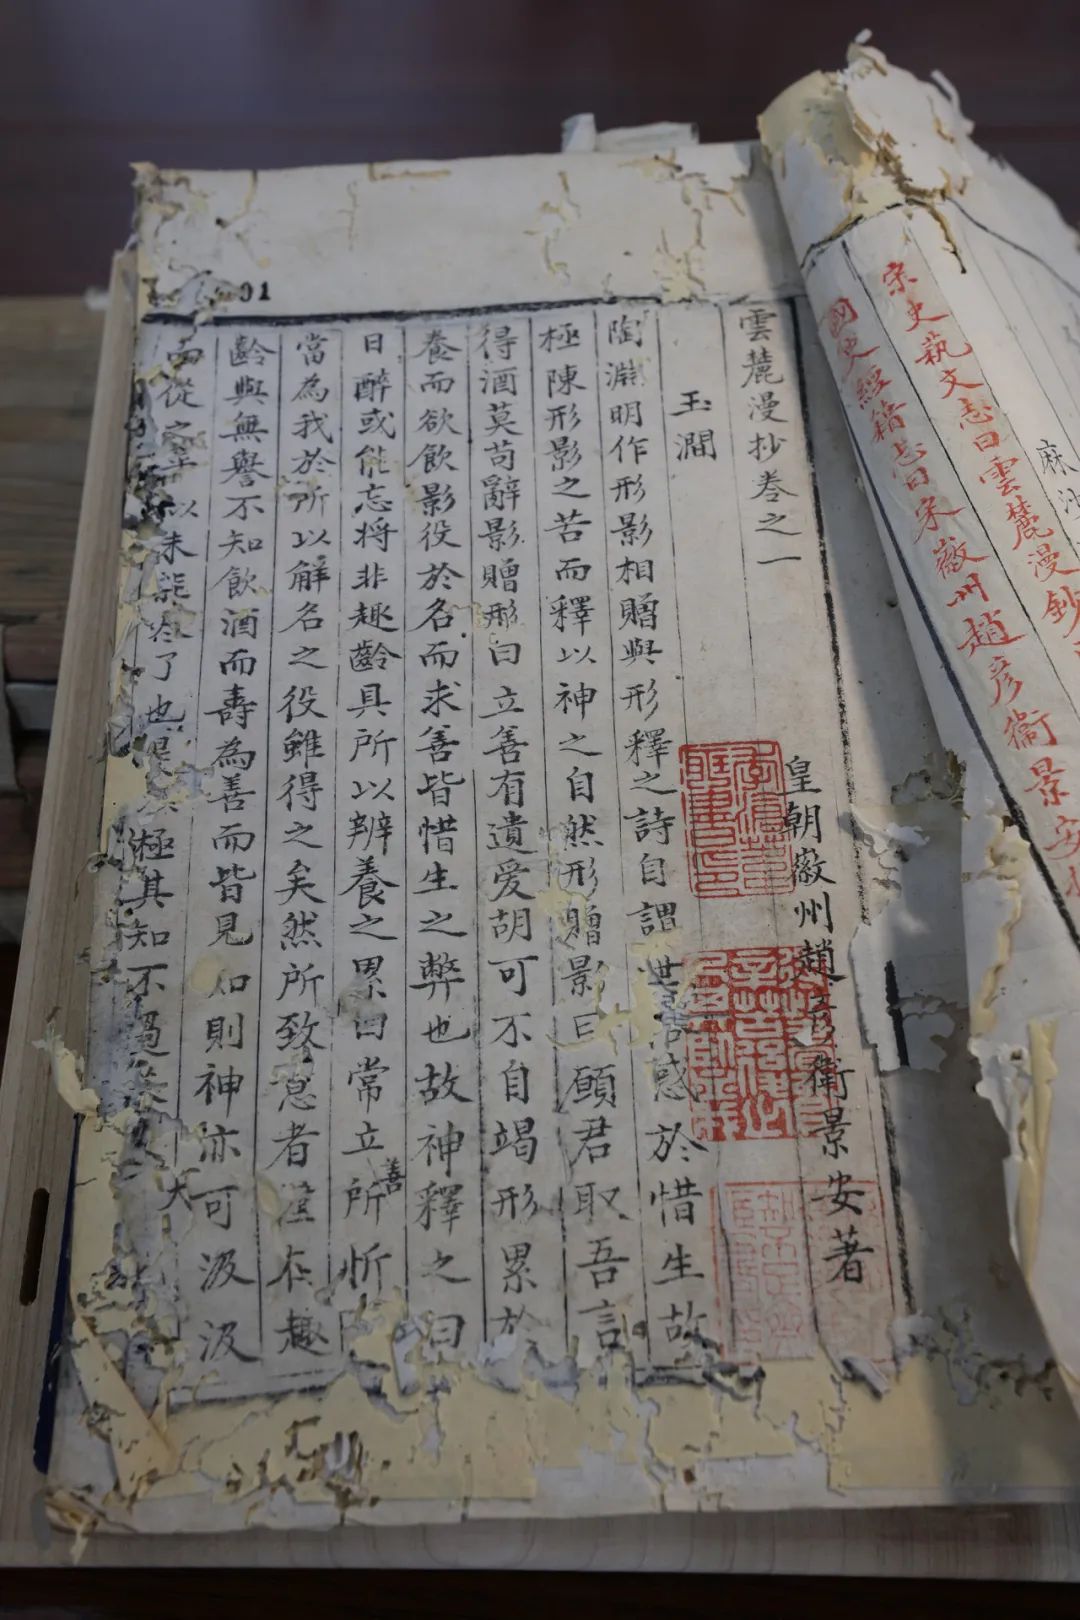 麻沙
宋史藝文志曰雲麓漫鈔
國史經籍志曰宋徽州趙彦衞景安
雲麓漫抄卷之一
皇朝徽州趙彦衞景安著
玉澗
陶淵明作形影相贈與形釋之詩自謂世惑於惜生故
極陳形影之苦而釋以神之自然形贈影曰願君取吾言
得酒莫苟辭影贈形曰立善有遺愛胡可不自竭形累於
養而欲飲影役於名而求善皆惜生之弊也故神釋之曰
日醉或能忘將非趣齡具所以辨養之累曰常立善所忻
當為我於所以解名之役雖得之矣然所致意者僅在趣
齡與無譽不知飲酒而壽為善而皆見知則神亦可汲汲
而從之乎以未能盡了也極其知不過
天
01